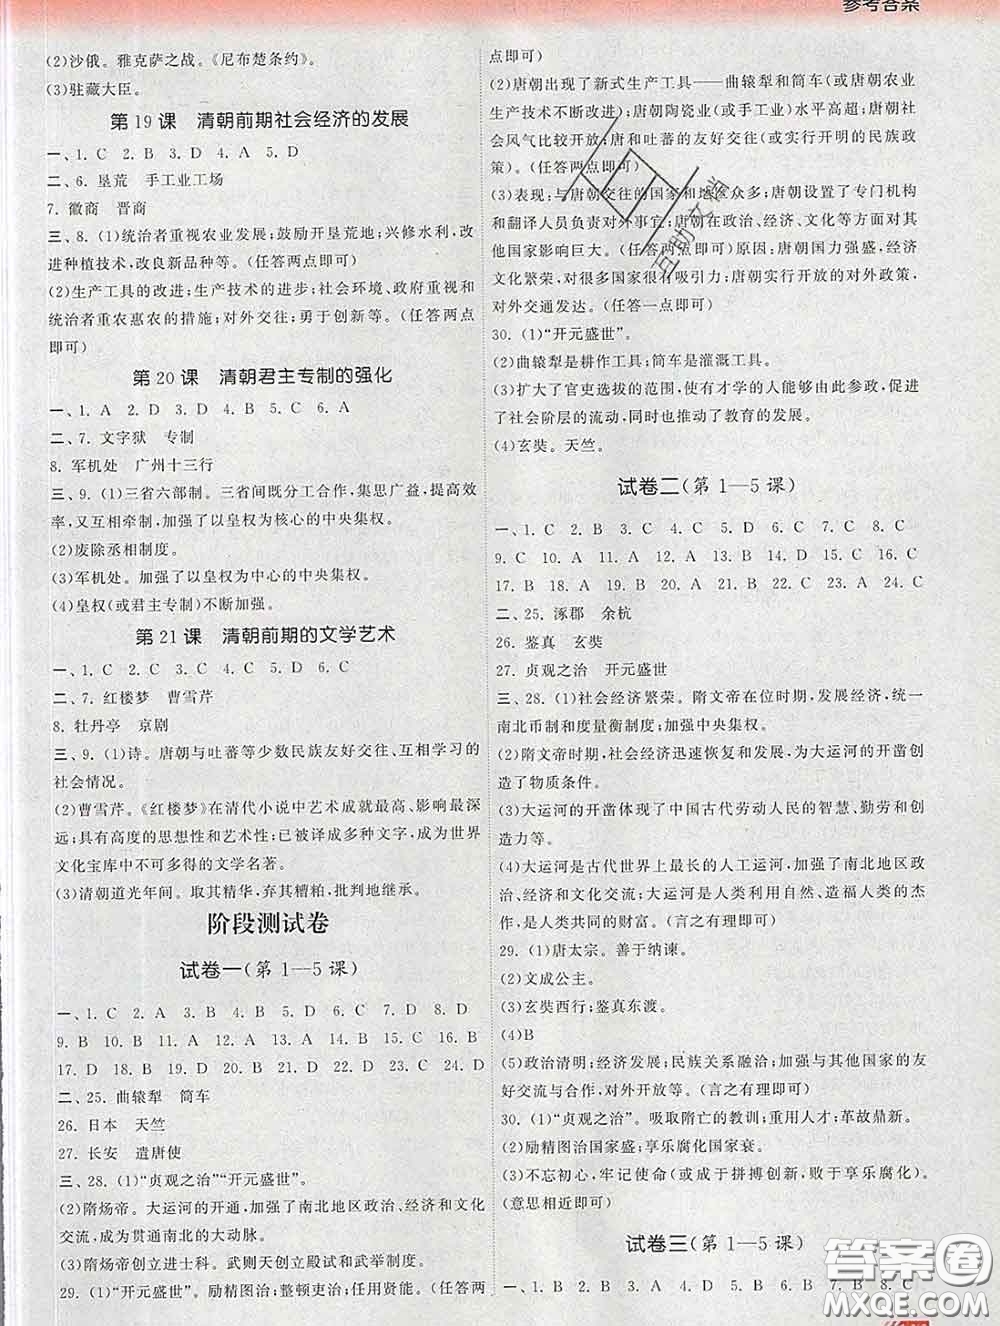 参考答案
(2)沙俄。雅克萨之战。《尼布楚条约》。
(3)驻藏大臣。
第 19 课　清朝前期社会经济的发展
一、1. C　2. B　3. D　4. A　5. D
二、6. 垦荒　手工业工场
7. 徽商　晋商
三、8. (1)统治者重视农业发展;鼓励开垦荒地;兴修水利,改
进种植技术,改良新品种等。(任答两点即可)
(2)生产工具的改进;生产技术的进步;社会环境、政府重视和
统治者重农惠农的措施;对外交往;勇于创新等。(任答两点
即可)
第 20 课　清朝君主专制的强化
一、1. A　2. D　3. D　4. B　5. C　6. A
二、7. 文字狱　专制
8. 军机处　广州十三行
三、9. (1)三省六部制。三省间既分工合作,集思广益,提高效
率,又互相牵制,加强了以皇权为核心的中央集权。
(2)废除丞相制度。
(3)军机处。加强了以皇权为中心的中央集权。
(4)皇权(或君主专制)不断加强。
第 21 课　清朝前期的文学艺术
一、1. C　2. C　3. C　4. C　5. D　6. C
二、7. 红楼梦　曹雪芹
8. 牡丹亭　京剧
三、9. (1)诗。唐朝与吐蕃等少数民族友好交往、互相学习的
社会情况。
(2)曹雪芹。《红楼梦》在清代小说中艺术成就最高、影响最深
远;具有高度的思想性和艺术性;已被译成多种文字,成为世界
文化宝库中不可多得的文学名著。
(3)清朝道光年间。取其精华,弃其糟粕,批判地继承。
阶段测试卷
试卷一(第 1—5 课)
一、1. C　2. A　3. A　4. B　5. D　6. D　7. D　8. D
9. B　10. B　11. B　12. A　13. C　14. B　15. C　16. B
17. D　18. D　19. B　20. C　21. D　22. B　23. D　24. D
二、25. 曲辕犁　筒车
26. 日本　天竺
27. 长安　遣唐使
三、28. (1)“贞观之治”“开元盛世”。
(2)隋炀帝。大运河的开通,加强了南北地区政治、经济和文化
交流,成为贯通南北的大动脉。
(3)隋炀帝创立进士科。武则天创立殿试和武举制度。
29. (1)“开元盛世”。励精图治;整顿吏治;任用贤能。(任答两
点即可)
(2)唐朝出现了新式生产工具——曲辕犁和筒车(或唐朝农业
生产技术不断改进);唐朝陶瓷业(或手工业)水平高超;唐朝社
会风气比较开放;唐和吐蕃的友好交往(或实行开明的民族政
策)。(任答两点即可)
(3)表现:与唐朝交往的国家和地区众多;唐朝设置了专门机构
和翻译人员负责对外事宜;唐朝在政治、经济、文化等方面对其
他国家影响巨大。(任答两点即可)原因:唐朝国力强盛,经济
文化繁荣,对很多国家很有吸引力;唐朝实行开放的对外政策,
对外交通发达。(任答一点即可)
30. (1)“开元盛世”。
(2)曲辕犁是耕作工具;筒车是灌溉工具。
(3)扩大了官吏选拔的范围,使有才学的人能够由此参政,促进
了社会阶层的流动,同时也推动了教育的发展。
(4)玄奘。天竺。
试卷二(第 1—5 课)
一、1. C　2. B　3. C　4. C　5. D　6. C　7. B　8. C
9. C　10. A　11. A　12. D　13. A　14. D　15. A　16. C
17. B　18. B　19. B　20. A　21. A　22. C　23. C　24. C
二、25. 涿郡　余杭
26. 鉴真　玄奘
27. 贞观之治　开元盛世
三、28. (1)社会经济繁荣。隋文帝在位时期,发展经济,统一
南北币制和度量衡制度;加强中央集权。
(2)隋文帝时期,社会经济迅速恢复和发展,为大运河的开凿创
造了物质条件。
(3)大运河的开凿体现了中国古代劳动人民的智慧、勤劳和创
造力等。
(4)大运河是古代世界上最长的人工运河,加强了南北地区政
治、经济和文化交流;大运河是人类利用自然、造福人类的杰
作,是人类共同的财富。(言之有理即可)
29. (1)唐太宗。善于纳谏。
(2)文成公主。
(3)玄奘西行;鉴真东渡。
(4)B
(5)政治清明;经济发展;民族关系融洽;加强与其他国家的友
好交流与合作,对外开放等。(言之有理即可)
30. (1)“贞观之治”。吸取隋亡的教训;重用人才;革故鼎新。
(2)励精图治国家盛;享乐腐化国家衰。
(3)不忘初心,牢记使命(或成于拼搏创新,败于享乐腐化)。
(意思相近即可)
试卷三(第 1—5 课)
一、1. B　2. C　3. A　4. D　5. A　6. D　7. B　8. C
答案圈
MXQE.COM